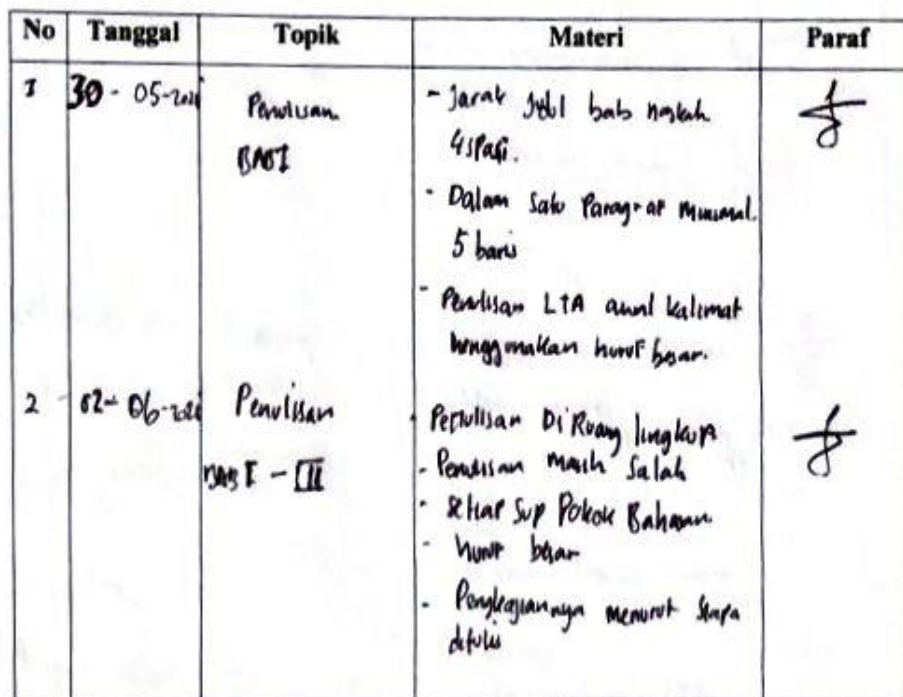 No Tanggal Topik Materi Paraf
1 30 - 05-202 Penulisan - Jarak Judul bab naskah
BAB I 4 spasi.
- Dalam satu Paragrap minimal
5 baris
- Penulisan LTA awal kalimat
menggunakan huruf besar.
2 02- 06-202 Penulisan - Penulisan Di Ruang lingkup
BAB I - III - Penulisan masih salah
- setiap sup Pokok Bahasan
- huruf besar
- Pengkajiannya menurut siapa
ditulis